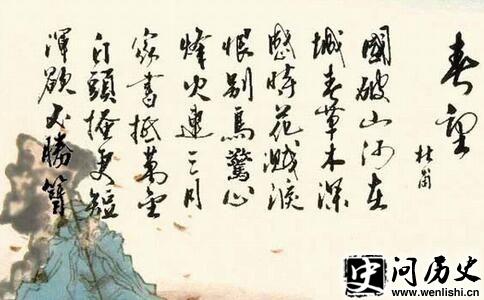 春望
杜甫
國破山河在
城春草木深
感時花濺淚
恨別鳥驚心
烽火連三月
家書抵萬金
白頭搔更短
渾欲不勝簪
史 问历史
www.wenlishi.cn